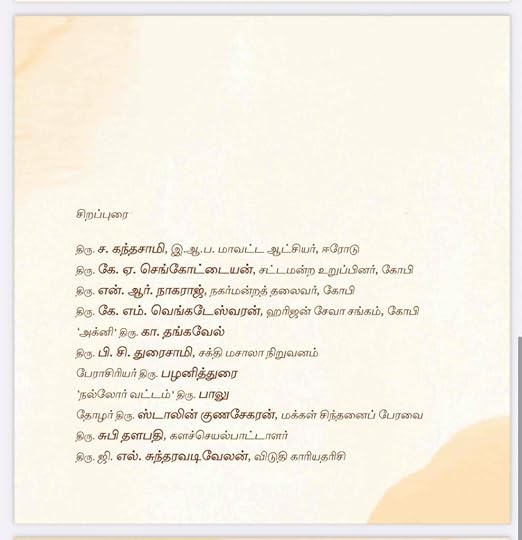 சிறப்புரை
திரு. ச. கந்தசாமி, இ.ஆ.ப. மாவட்ட ஆட்சியர், ஈரோடு
திரு. கே. ஏ. செங்கோட்டையன், சட்டமன்ற உறுப்பினர், கோபி
திரு. என். ஆர். நாகராஜ், நகர்மன்றத் தலைவர், கோபி
திரு. கே. எம். வெங்கடேஸ்வரன், ஹரிஜன் சேவா சங்கம், கோபி
'அக்னி' திரு. கா. தங்கவேல்
திரு. பி. சி. துரைசாமி, சக்தி மசாலா நிறுவனம்
பேராசிரியர் திரு. பழனித்துரை
'நல்லோர் வட்டம்' திரு. பாலு
தோழர் திரு. ஸ்டாலின் குணசேகரன், மக்கள் சிந்தனைப் பேரவை
திரு. சுபி தளபதி, களச்செயல்பாட்டாளர்
திரு. ஜி. எல். சுந்தரவடிவேலன், விடுதி காரியதரிசி